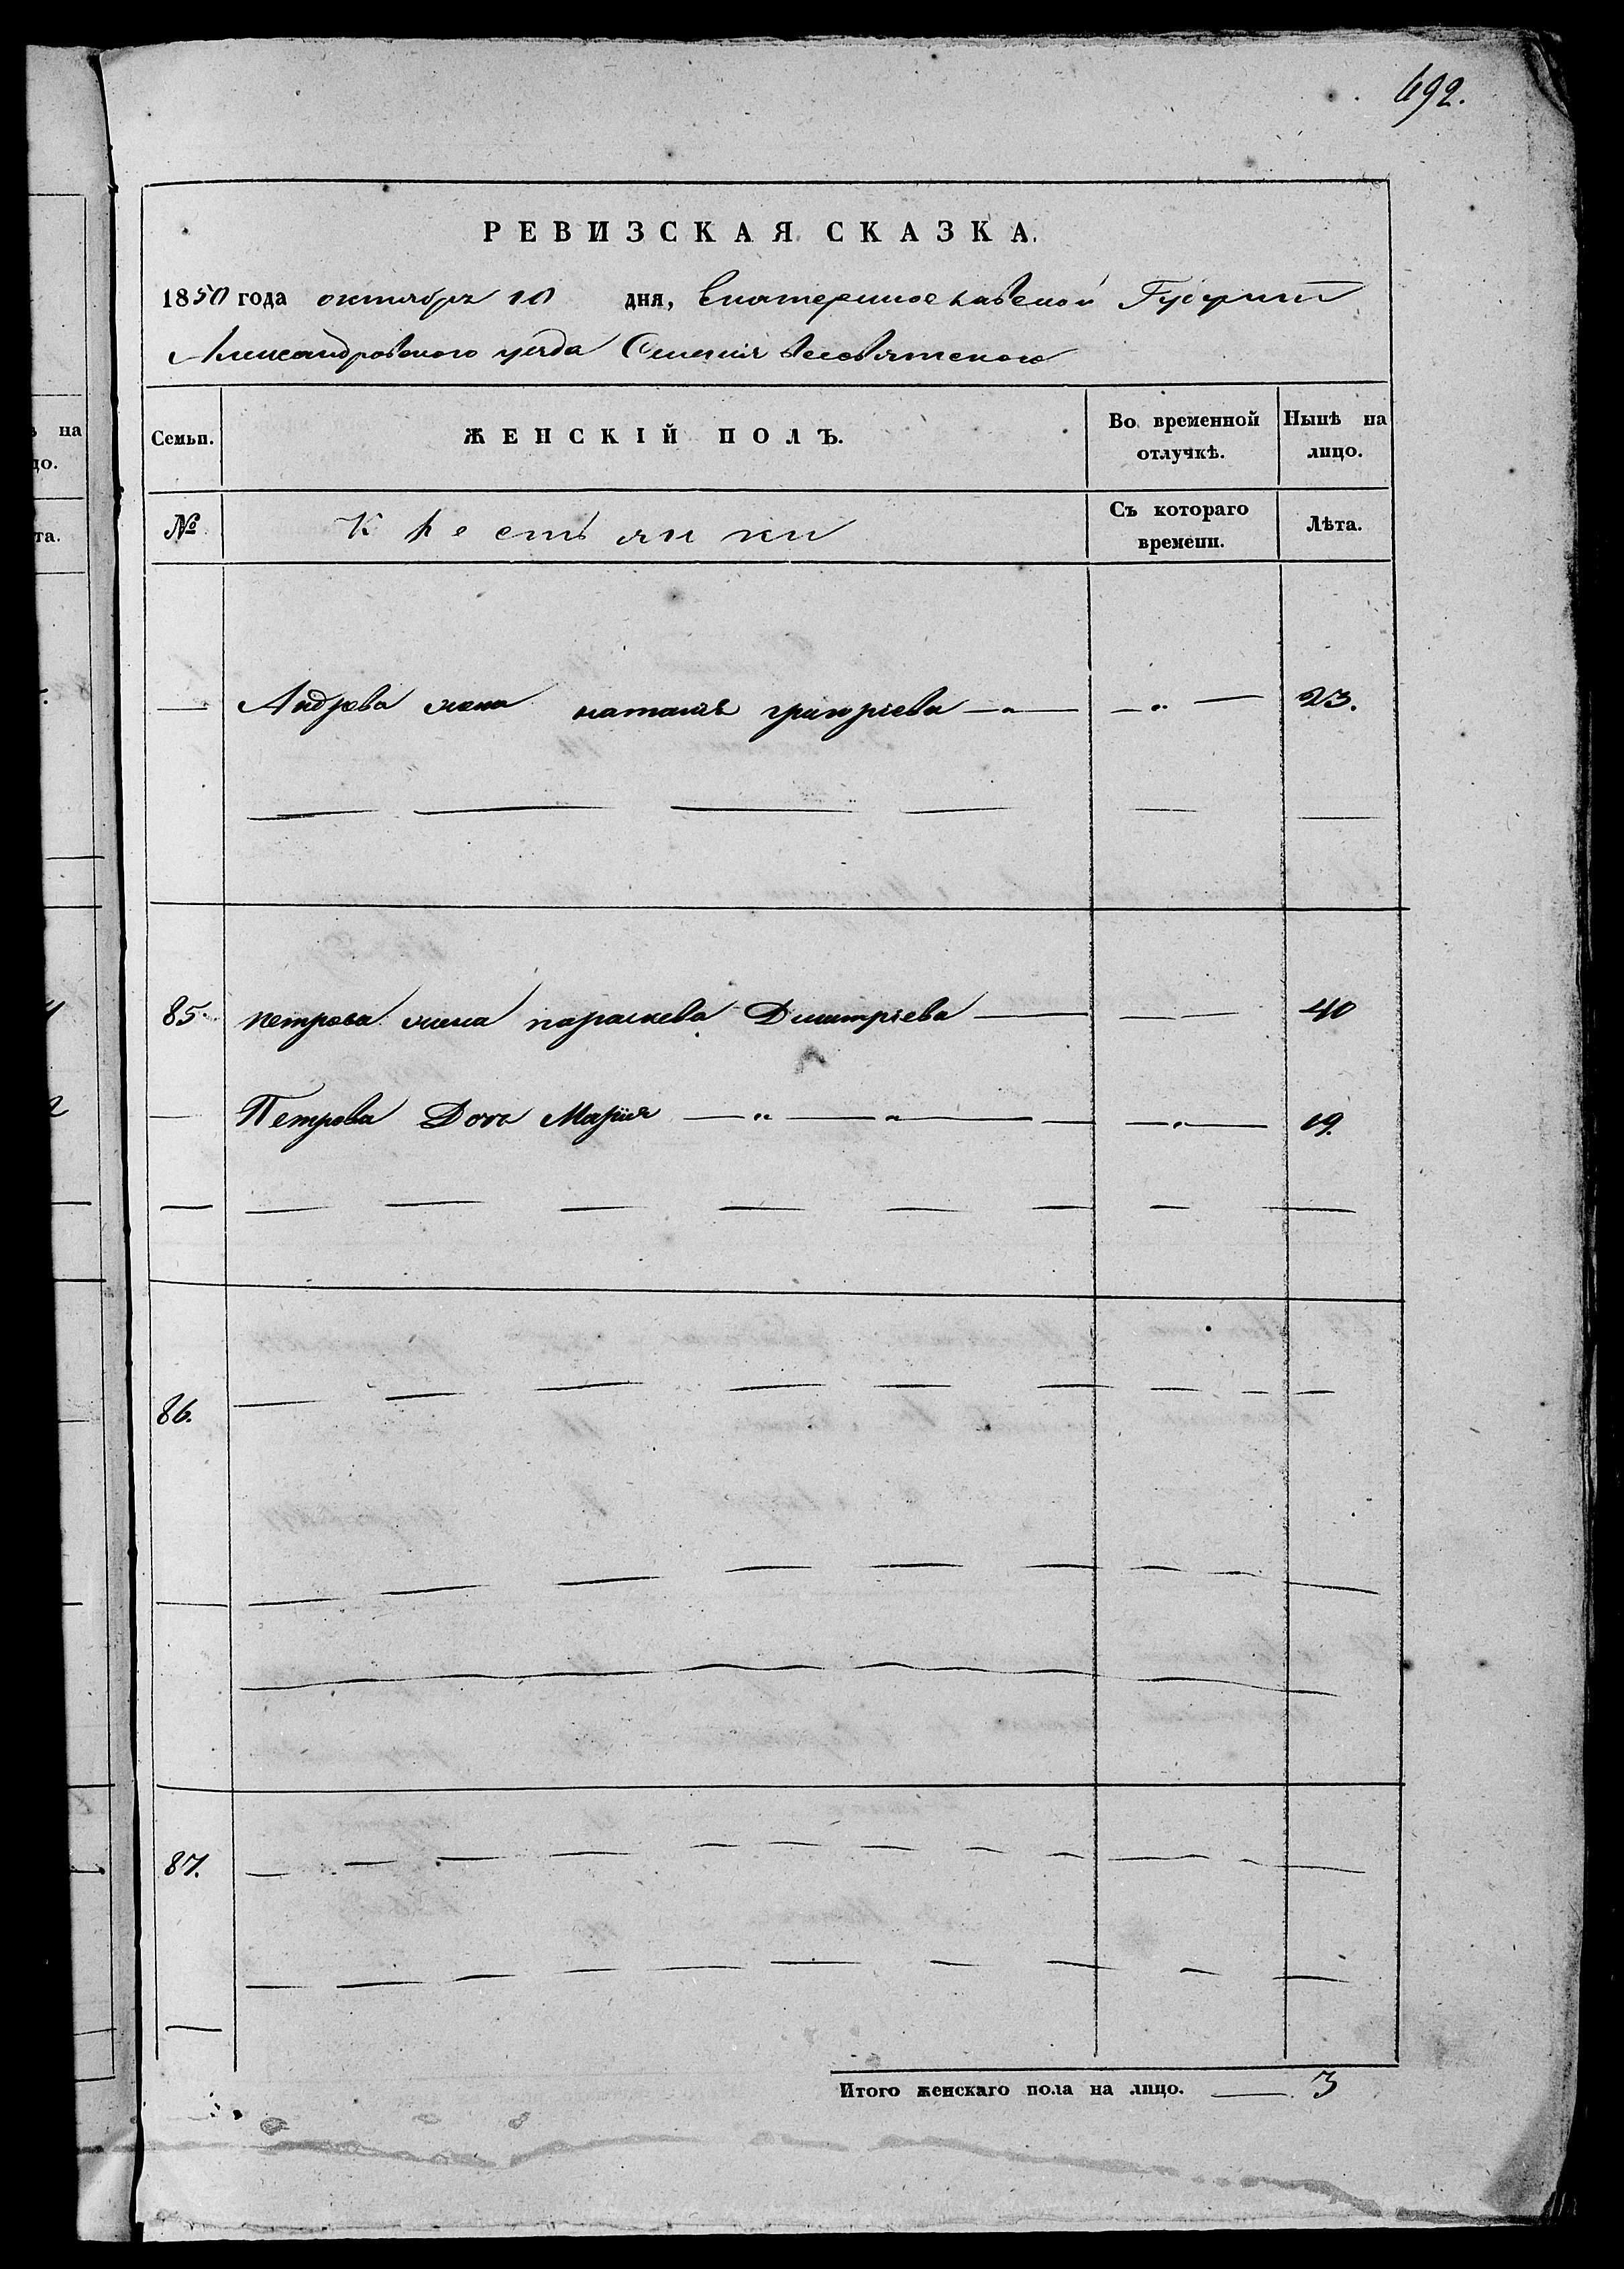 492.
РЕВИЗСКАЯ СКАЗКА.
1850 года октября 10 дня, Екатеринославской Губернии
Александровского уезда Селения Всесвятского
Семьи. ЖЕНСКІЙ ПОЛЪ. Во временной отлучкѣ. Нынѣ на лицо.
№ Крестьянки Съ котораго времени. Лѣта.
Андрѣева жена наталія григорiева — „ — — „ — 23.
85. петрова жена параскева Димитріева — — — 40
— Петрова Дочь Марія — „ — „ — — „ — 19.
86.
87.
Итого женскаго пола на лицо. — 3
на
до.
та.